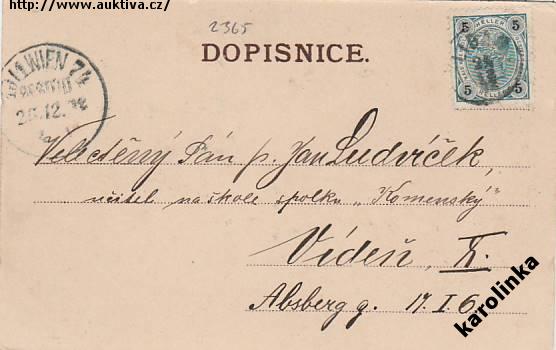 http://www.auktiva.cz/
2365
DOPISNICE.
5 HELLER 5
5 HELLER 5
WIEN 74
Velectěný Pán p. Jan Ludvíček,
učitel na škole spolku „Komenský“
Vídeň, X.
Absberg g. 17. I 6.
karolinka